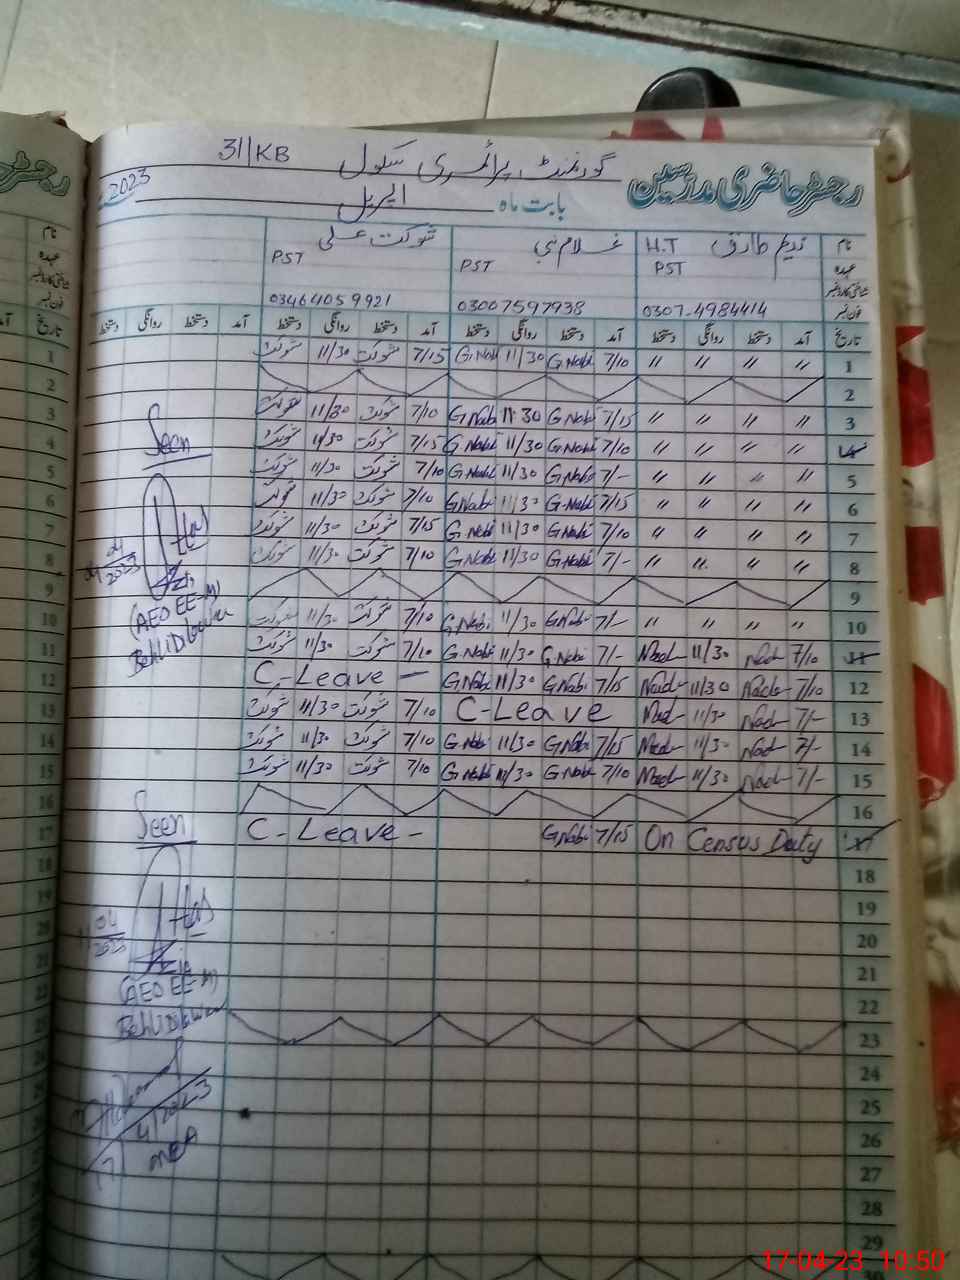 رجسٹر حاضری مدرسین گورنمنٹ پرائمری سکول 311KB
بابت ماہ اپریل 2023
نام ندیم طارق H.T غلام نبی شوکت علی
عہدہ PST PST PST
شناختی کارڈ نمبر
فون نمبر 0307-4984414 03007597938 03464059921
تاریخ آمد دستخط روانگی دستخط آمد دستخط روانگی دستخط آمد دستخط روانگی دستخط آمد دستخط روانگی دستخط
1 " " " " 7/10 G.Nabi 11/30 G.Nabi 7/15 شوکت 11/30 شوکت
2
3 " " " " 7/15 G.Nabi 11:30 G.Nabi 7/10 شوکت 11/30 شوکت
4 " " " " 7/10 G.Nabi 11/30 G.Nabi 7/15 شوکت 11/30 شوکت
5 " " " " 7/- G.Nabi 11/30 G.Nabi 7/10 شوکت 11/30 شوکت
6 " " " " 7/15 G.Nabi 11/30 G.Nabi 7/10 شوکت 11/30 شوکت
7 " " " " 7/10 G.Nabi 11/30 G.Nabi 7/15 شوکت 11/30 شوکت
8 " " " " 7/- G.Nabi 11/30 G.Nabi 7/10 شوکت 11/30 شوکت
9
10 " " " " 7/- G.Nabi 11/30 G.Nabi 7/10 شوکت 11/30 شوکت
11 7/10 Nad 11/30 Nad 7/- G.Nabi 11/30 G.Nabi 7/10 شوکت 11/30 شوکت
12 7/10 Nad 11/30 Nad 7/15 G.Nabi 11/30 G.Nabi C-Leave -
13 7/- Nad 11/30 Nad C-Leave 7/10 شوکت 11/30 شوکت
14 7/- Nad 11/30 Nad 7/15 G.Nabi 11/30 G.Nabi 7/10 شوکت 11/30 شوکت
15 7/- Nad 11/30 Nad 7/10 G.Nabi 11/30 G.Nabi 7/10 شوکت 11/30 شوکت
16
17 On Census Duty 7/15 G.Nabi C-Leave -
18
19
20
21
22
23
24
25
26
27
28
29
Seen
04
2023
(AEO EE-M)
Seen
04
2023
(AEO EE-M)
17/4/2023
MEA
نام
عہدہ
شناختی کارڈ نمبر
فون نمبر
تاریخ
17-04-23 10:50